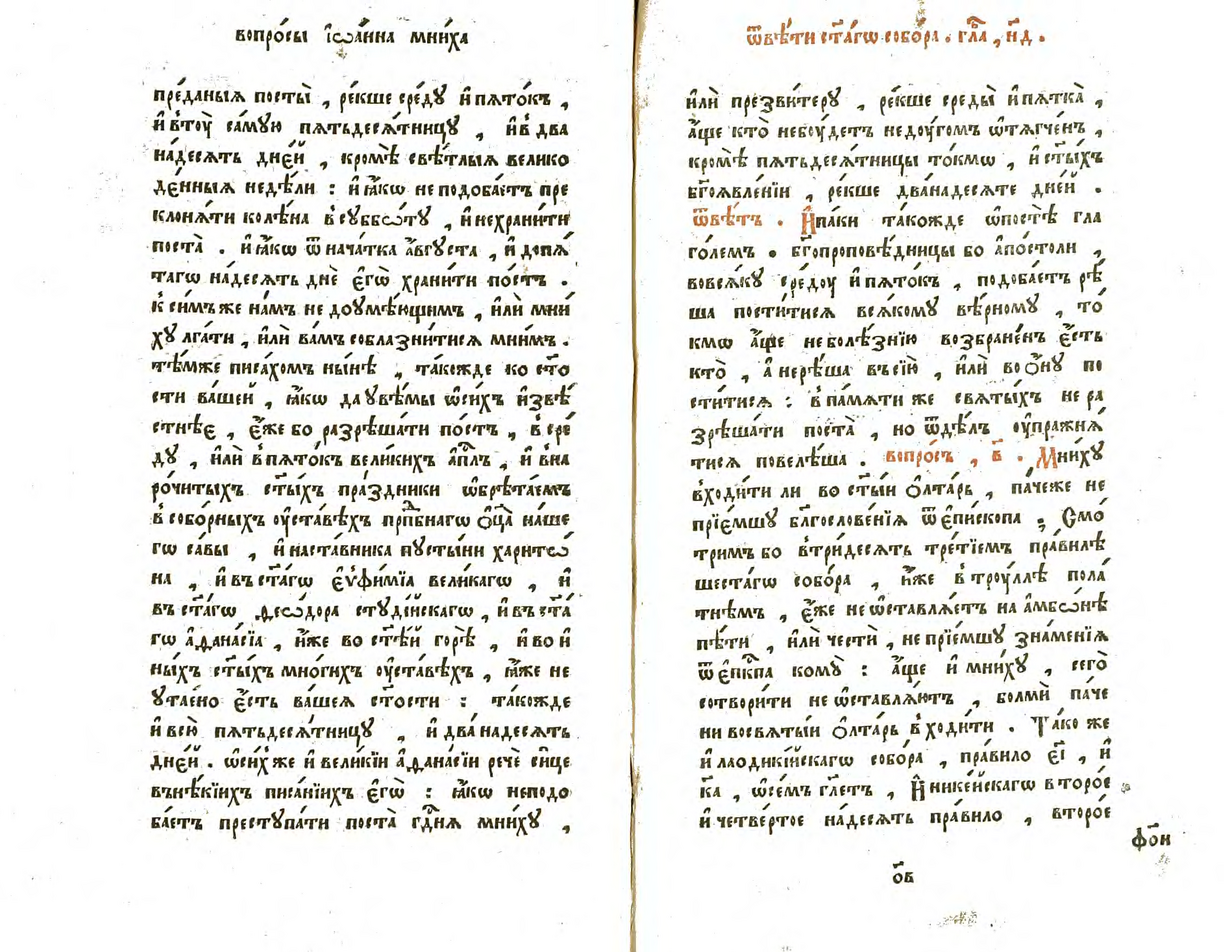 вопро́сы і҆ѡа́нна мни́ха
пре́даныѧ посты̀ , ре́кше сре́дꙋ и҆ пѧто́къ ,
и҆ в̾тоу̀ са́мую пѧтьдесѧ́тницꙋ , и҆ в̾ два
на́десѧть дне́й , кромѣ̀ свѣ́тлыѧ велико
де́нныѧ недѣ́ли : и҆ ꙗ҆́кѡ не подоба́етъ пре
клонѧ́ти колѣ́на в̾ сꙋббѡ́тꙋ , и҆ нехрани́ти
поста̀ . и҆ ꙗ҆́кѡ ѿ нача́тка а҆́вгꙋста , и҆ допѧ́
тагѡ на́десѧть днѐ є҆гѡ̀ храни́ти по́стъ .
к̾ си́мъ же на́мъ не доꙋмѣ́ющимъ , и҆лѝ мни́
хꙋ лга́ти , и҆лѝ ва́мъ соблазни́тисѧ мни́мъ .
тѣ́мже писа́хомъ ны́нѣ , та́кожде ко ст҃о
сти ва́шей , ꙗ҆́кѡ да ᲂу҆вѣ́мы ѡ҆си́хъ и҆звѣ́
стнѣе , є҆́же бо разрѣша́ти по́стъ , в̾ сре́
дꙋ , и҆лѝ в̾ пѧто́къ вели́кихъ а҆пⷭ҇лъ , и҆ в̾на
ро́читыхъ ст҃ы́хъ пра́здники ѡ҆брѣта́емъ
в̾ собо́рныхъ ᲂу҆ста́вѣхъ прпⷣбнагѡ ѻ҆ц҃а̀ на́ше
гѡ са́вы , и҆ наста́вника пꙋсты́ни харито́
на , и҆ въ ст҃а́гѡ є҆ѵфи́мїа вели́кагѡ , и҆
въ ст҃а́гѡ ѳео́дора стꙋді́йскагѡ , и҆ въ ст҃а́
гѡ а҆ѳана́сїа , и҆́же во ст҃ѣ́й горѣ̀ , и҆ во и҆
ны́хъ ст҃ы́хъ мно́гихъ ᲂу҆ста́вѣхъ , ꙗ҆́же не
ᲂу҆таено̀ є҆́сть ва́шеѧ ст҃ости : та́кожде
и҆ всю̀ пѧтьдесѧ́тницꙋ , и҆ два́ надесѧть
дне́й . ѡ҆си́хже и҆ вели́кїи а҆ѳана́сїи речѐ си́це
въ нѣ́кїихъ писа́нїихъ є҆гѡ̀ : ꙗ҆́кѡ неподо
ба́етъ престꙋпа́ти поста̀ гдⷭ҇нѧ мни́хꙋ ,
ѿвѣ́ти ст҃а́гѡ собо́ра . гла҃ , н҃д .
и҆лѝ презви́терꙋ , ре́кше среды̀ и҆ пѧтка̀ ,
а҆́ще кто̀ небꙋ́детъ недꙋ́гомъ ѡ҆тѧгче́нъ ,
кромѣ̀ пѧтьдесѧ́тницы то́кмѡ , и҆ ст҃ы́хъ
бг҃оѧвле́нїи , ре́кше два́надесѧте дне́й .
ѿвѣ́тъ . И҆ па́ки та́кожде ѡ҆постѣ̀ гла
го́лемъ . бг҃опроповѣ́дницы бо а҆по́столи ,
вовсѧ́кꙋ сре́доу и҆ пѧто́къ , подоба́етъ рѣ́
ша пости́тисѧ всѧ́комꙋ вѣ́рномꙋ , то́
кмѡ а҆́ще неболѣ́знїю возбране́нъ є҆́сть
кто̀ , а҆ нерѣ́ша въ сїю̀ , и҆лѝ во ѻ҆́нꙋ по
сти́тисѧ : в̾ па́мѧти же свѧты́хъ не ра
зрѣша́ти поста̀ , но ѿдѣ́лъ ᲂу҆пражнѧ́
тисѧ повелѣ́ша . вопро́съ , в҃ . Мни́хꙋ
в̾ходи́ти ли во ст҃ы́и ѻ҆лта́рь , па́чеже не
прїе́мшꙋ блгⷭ҇ове́нїѧ ѿ є҆пи́скопа ; Смо́
тримъ бо в̾три́десѧть тре́тїемъ пра́вилѣ
шеста́гѡ собо́ра , и҆́же в̾ трꙋ́ллѣ пола́
тнѣмъ , є҆́же не ѡ҆ставлѧ́етъ на а҆мбѡ́нѣ
пѣ́ти , и҆лѝ честѝ , не прїе́мшꙋ зна́менїѧ
ѿ є҆пⷭ҇кпа комꙋ̀ : а҆́ще и҆ мни́хꙋ , сего̀
сотвори́ти не ѡ҆ставлѧ́ютъ , болмѝ па́че
ни восвѧты́и ѻ҆лта́рь в̾ходи́ти . Та́ко же
и҆ лаодикі́йскагѡ собо́ра , пра́вило є҃і , и҆
к҃а , ѡ҆се́мъ гл҃етъ , И҆ нике́йскагѡ второ́е
и҆ четве́ртое на́десѧть пра́вило , второ́е
ф҃он
о҃в